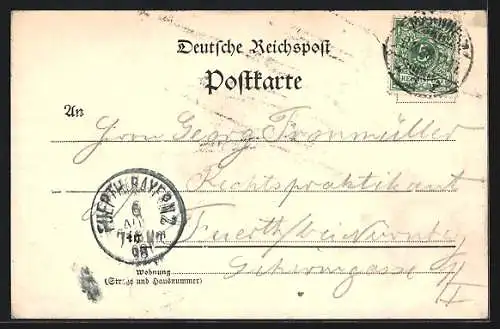 Deutsche Reichspost
Postkarte
An Herrn Georg Tranmüller
Rechtspraktikant
Fuerth bei Nürnberg
FUERTH.BAYERN.2
6
98
Wohnung
(Straße und Hausnummer)
5